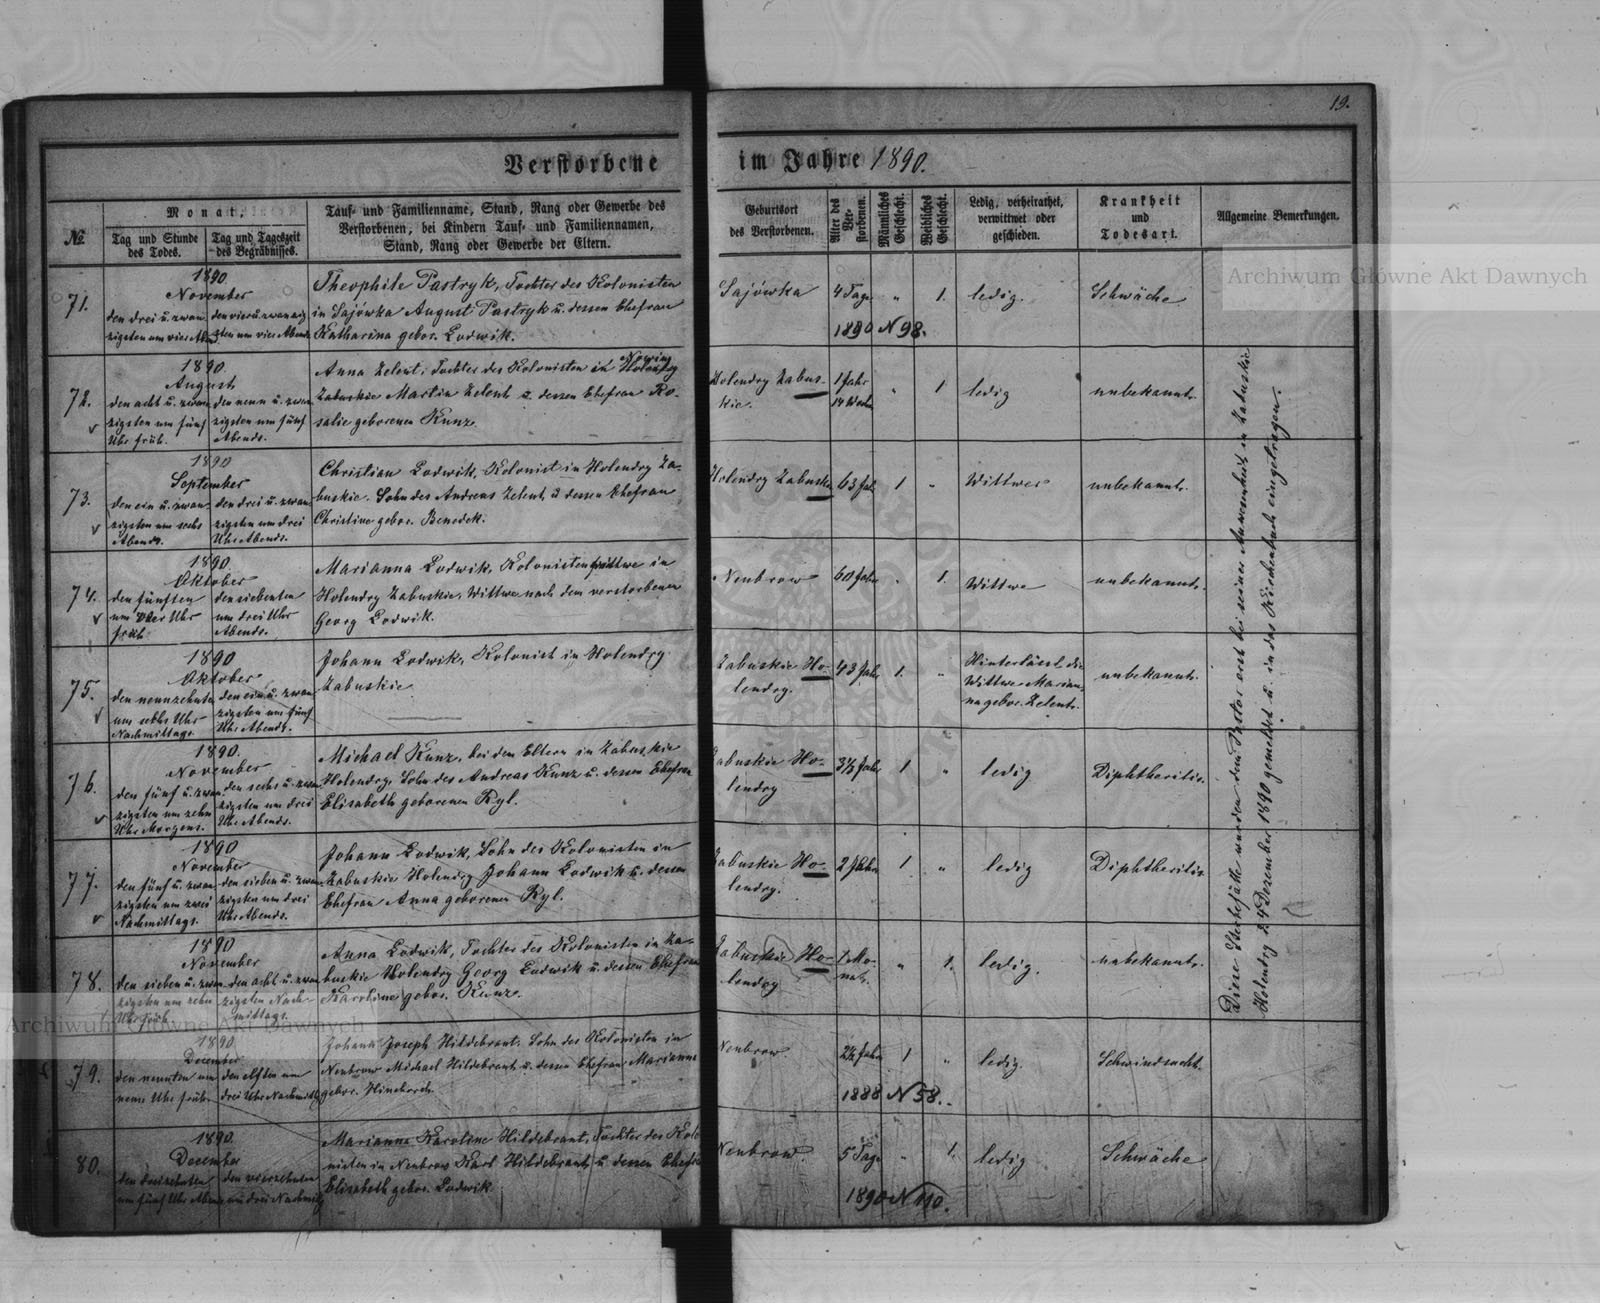 19.
Verstorbene im Jahre 1890.
№
Monat,
Tag und Stunde
des Todes.
Tag und Tageszeit
des Begräbnisses.
Tauf- und Familienname, Stand, Rang oder Gewerbe des
Verstorbenen, bei Kindern Tauf- und Familiennamen,
Stand, Rang oder Gewerbe der Eltern.
Geburtsort
des Verstorbenen.
Alter des
Ver-
storbenen.
Männliches
Geschlecht.
Weibliches
Geschlecht.
Ledig, verheirathet,
verwittwet oder
geschieden.
Krankheit
und
Todesart.
Allgemeine Bemerkungen.
Archiwum Główne Akt Dawnych
71.
1890.
November
den drei u. zwan
zigsten um vier Abend
den vier u. zwanzig
sten um vier Abends
Theophile Pastryk, Tochter des Kolonisten
in Sajówka August Pastryk u. dessen Ehefrau
Katharina gebor. Lodwik.
Sajówka
4 Tage
"
1.
ledig.
Schwäche
1890 N 98.
72.
1890.
August
den acht u. zwan
zigsten um fünf
Uhr früh.
den neun u. zwan
zigsten um fünf
Abends.
Anna Zelent, Tochter des Kolonisten in Holendry
Zabuskie Martin Zelent u. dessen Ehefrau Ro-
salie geborenen Kunz.
Holendry Zabus-
kie.
1 Jahr
14 Woch
"
1
ledig
unbekannt.
73.
1890
September
den ein u. zwan
zigsten um sechs
Abends.
den drei u. zwan
zigsten um drei
Uhr Abends.
Christian Lodwik, Kolonist in Holendry Za-
buskie. Sohn des Andreas Zelent u dessen Ehefrau
Christine gebor. Benedek.
Holendry Zabuskie
63 Jah
1
"
Wittwer
unbekannt.
74.
1890.
Oktober
den fünften
um Uhr
früh
den siebenten
um drei Uhr
Abends.
Marianna Lodwik, Kolonistenwittwe in
Holendry Zabuskie, Wittwe nach dem verstorbenen
Georg Lodwik.
Neubrow
60 Jahr
"
1.
Wittwe
unbekannt.
75.
1890
Oktober
den neunzehnten
um sechs Uhr
Nachmittags.
den ein u. zwan
zigsten um fünf
Uhr Abends.
Johann Lodwik, Kolonist in Holendry
Zabuskie.
Zabuskie Ho-
lendry.
43 Jahr
1.
"
Hinterlässt die
Wittwe Marian-
na gebor. Zelent.
unbekannt.
76.
1890.
November
den fünf u. zwan
zigsten um zehn
Uhr Morgens.
den sechs u. zwan
zigsten um drei
Uhr Abends.
Michael Kunz, bei den Eltern in Zabuskie
Holendry, Sohn des Andreas Kunz u. dessen Ehefrau
Elisabeth geborenen Ryl.
Zabuskie Ho-
lendry
3½ Jahr
1
"
ledig
Diphtheritis.
77.
1890
November
den fünf u. zwan
zigsten um zwei
Nachmittags.
den sieben u. zwan
zigsten um drei
Uhr Abends.
Johann Lodwik, Sohn des Kolonisten in
Zabuskie Holendry Johann Lodwik u. dessen
Ehefrau Anna geborenen Ryl.
Zabuskie Ho-
lendry.
2 Jahr
1
"
ledig
Diphtheritis.
78.
1890
November
den sieben u. zwan
zigsten um zehn
Uhr früh.
den acht u. zwan
zigsten Nach-
mittags.
Anna Lodwik, Tochter des Kolonisten in Za-
buskie Holendry Georg Lodwik u. dessen Ehefrau
Karoline gebor. Kunz.
Zabuskie Ho-
lendry
Mo-
nat.
"
1.
ledig.
unbekannt.
Diese Sterbefälle wurden dem Pastor erst bei seiner Anwesenheit in Zabuskie
Holendry d. 4 Dezember 1890 gemeldet u. in das Kirchenbuch eingetragen.
Archiwum Główne Akt Dawnych
79.
1890.
December
den neunten um
neun Uhr früh.
den elften um
drei Uhr Nachmittg
Johann Joseph Hildebrant, Sohn des Kolonisten in
Neubrow Michael Hildebrant u. dessen Ehefrau Marianna
gebor.
Neubrow.
2½ Jahr
1
"
ledig.
Schwindsucht.
1888 N 58.
80.
1890.
December
den dreizehnten
um fünf Uhr Abend
den vierzehnten
um drei Nachmittg
Marianna Karoline Hildebrant, Tochter des Kolo
nisten in Neubrow Karl Hildebrant u dessen Ehefrau
Elisabeth gebor. Lodwik.
Neubrow.
5 Tage
"
1.
ledig
Schwäche
1890 N 110.